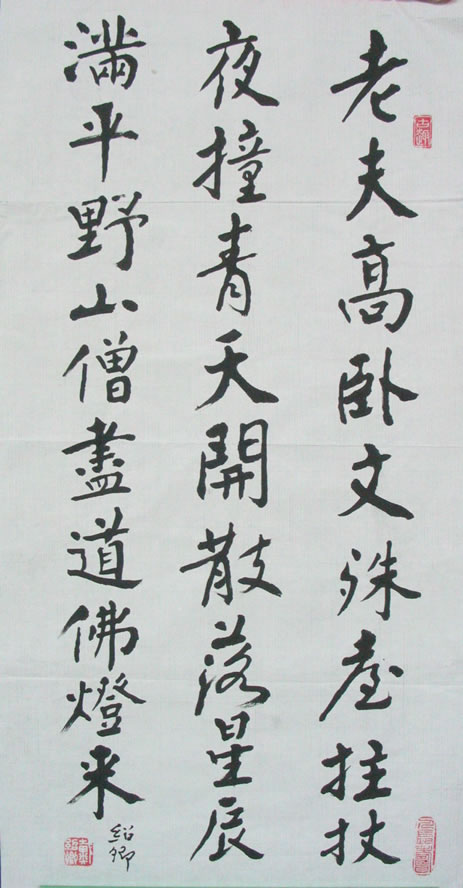 老夫高卧文殊臺拄杖
夜撞青天開散落星辰
滿平野山僧盡道佛燈来
紹卿